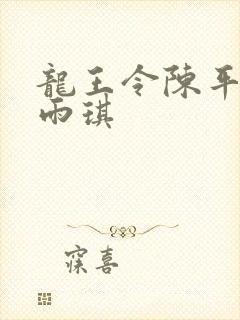 龍王令陳平
雨琪
寐喜